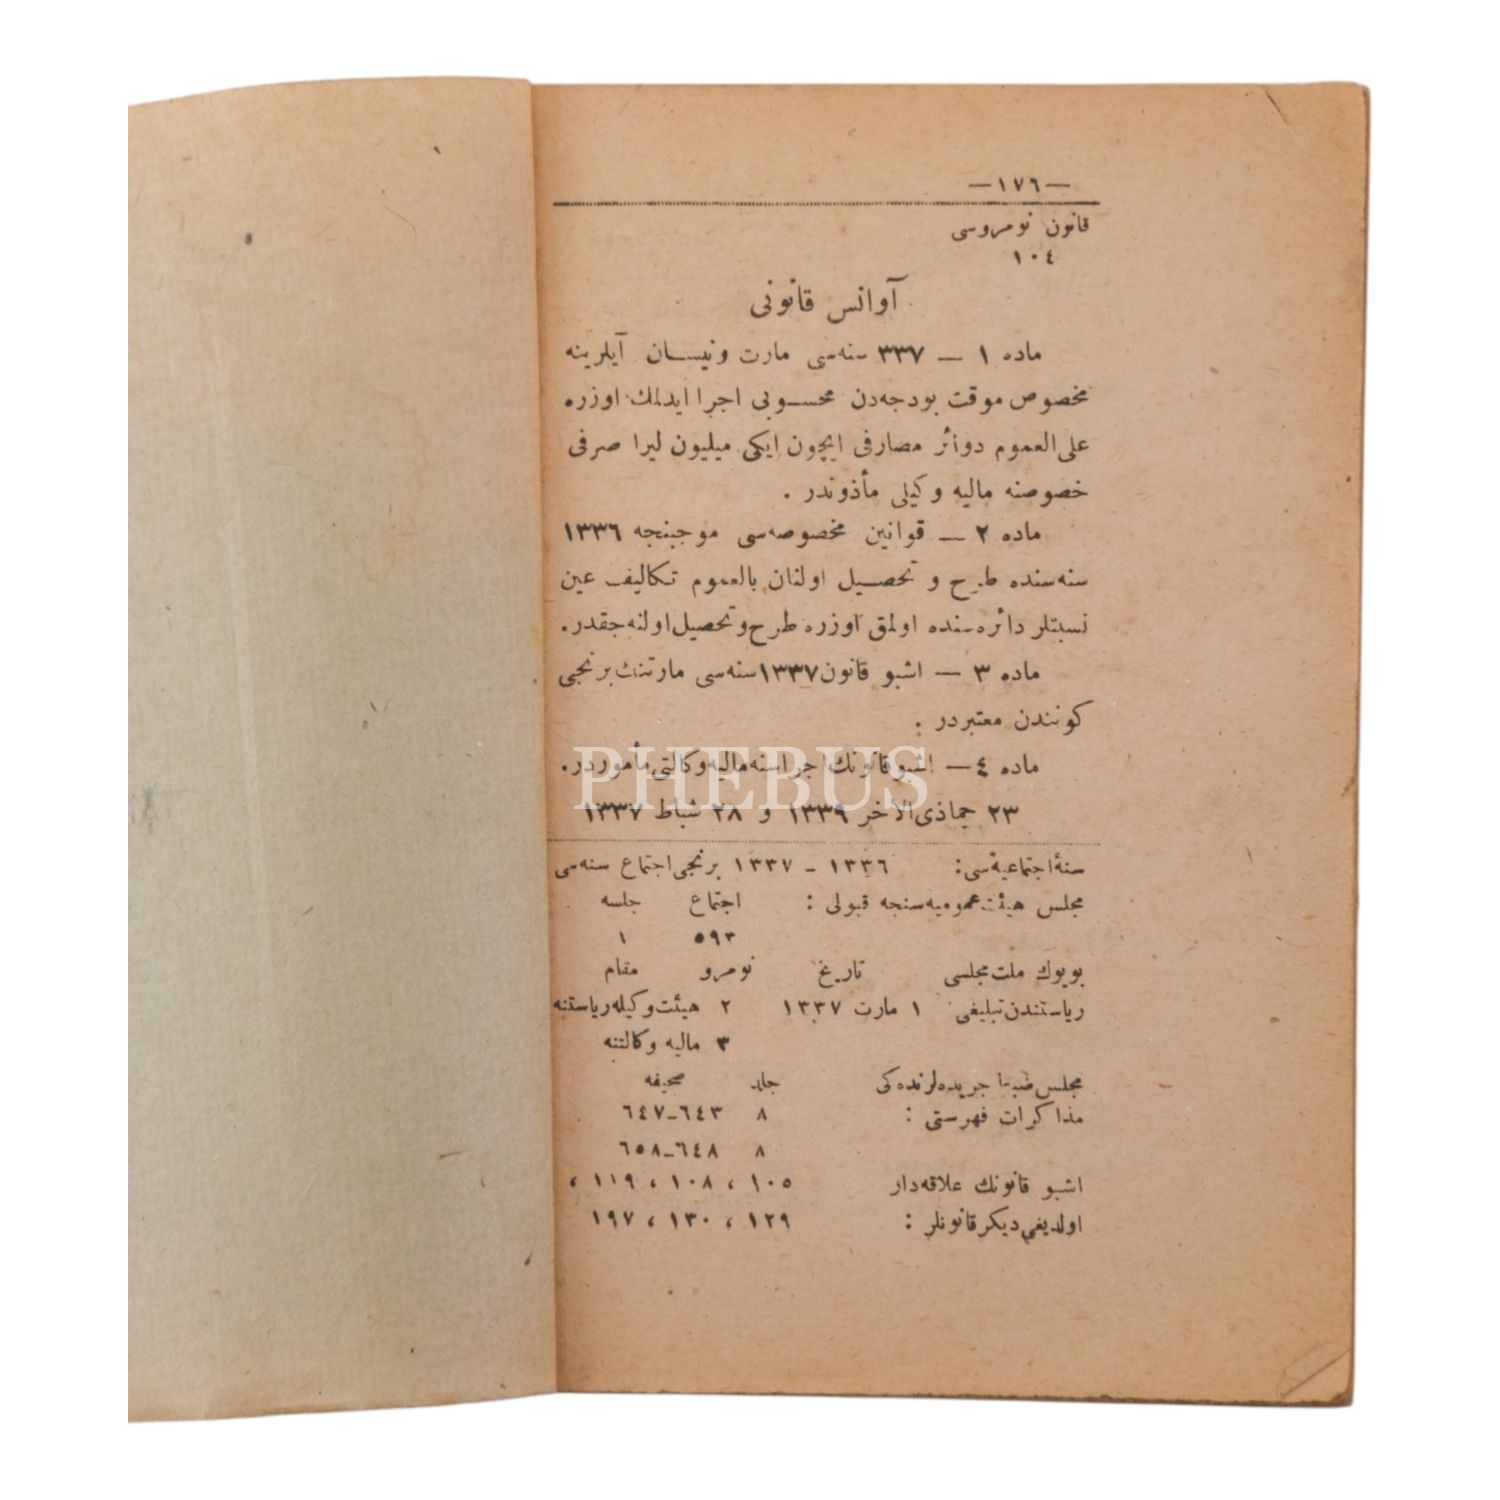 —١٧٦—
قانون نومروسی
١٠٤
آوانس قانونی
ماده ١ — ٣٣٧ سنه‌سی مارت ونیسان آیلرینه
مخصوص موقت بودجه‌دن محسوبی اجرا ایدلمك اوزره
علی‌العموم دوائر مصارفی ایچون ایکی میلیون لیرا صرفی
خصوصنه مالیه وکیلی مأذوندر .
ماده ٢ — قوانین مخصوصه‌سی موجبنجه ١٣٣٦
سنه‌سنده طرح و تحصیل اولنان بالعموم تکالیف عین
نسبتلر دائره‌سنده اولمق اوزره طرح وتحصیل اولنه‌جقدر.
ماده ٣ — اشبو قانون ١٣٣٧ سنه‌سی مارتنك برنجی
کونندن معتبردر .
ماده ٤ — اشبو قانونك اجراسنه مالیه وکالتی مأموردر.
PHEBUS
٢٣ جماذی‌الآخر ١٣٣٩ و ٢٨ شباط ١٣٣٧
سنهٔ اجتماعیه‌سی: ١٣٣٦ - ١٣٣٧ برنجی اجتماع سنه‌سی
مجلس هیئت عمومیه‌سنجه قبولی : اجتماع جلسه
٥٩٣ ١
بویوك ملت مجلسی تاریخ نومرو مقام
ریاستندن تبلیغی ١ مارت ١٣٣٧ ٢ هیئت وکیله ریاستنه
٣ مالیه وکالتنه
مجلس ضبط جریده‌لرنده‌کی جلد صحیفه
مذاکرات فهرستی : ٨ ٦٤٣-٦٤٧
٨ ٦٤٨-٦٥٨
اشبو قانونك علاقه‌دار ١٠٥ ، ١٠٨ ، ١١٩ ،
اولدیغی دیکر قانونلر : ١٢٩ ، ١٣٠ ، ١٩٧